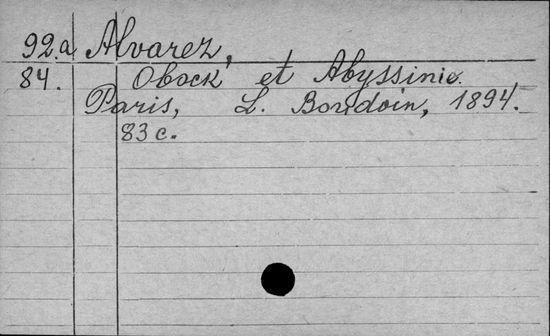 92.a Alvarez,
84. Obock et Abyssinie.
Paris, L. Boudoin, 1894.
83 c.